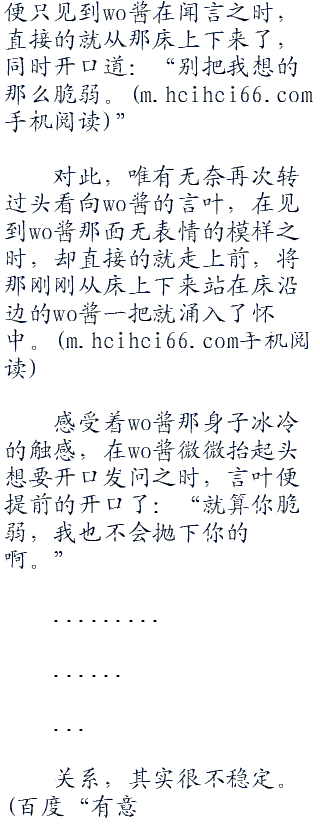 便只见到wo酱在闻言之时，
直接的就从那床上下来了，
同时开口道：“别把我想的
那么脆弱。(m.hcihci66.com
手机阅读)”
对此，唯有无奈再次转
过头看向wo酱的言叶，在见
到wo酱那面无表情的模样之
时，却直接的就走上前，将
那刚刚从床上下来站在床沿
边的wo酱一把就涌入了怀
中。(m.hcihci66.com手机阅
读)
感受着wo酱那身子冰冷
的触感，在wo酱微微抬起头
想要开口发问之时，言叶便
提前的开口了：“就算你脆
弱，我也不会抛下你的
啊。”
.........
......
...
关系，其实很不稳定。
(百度“有意